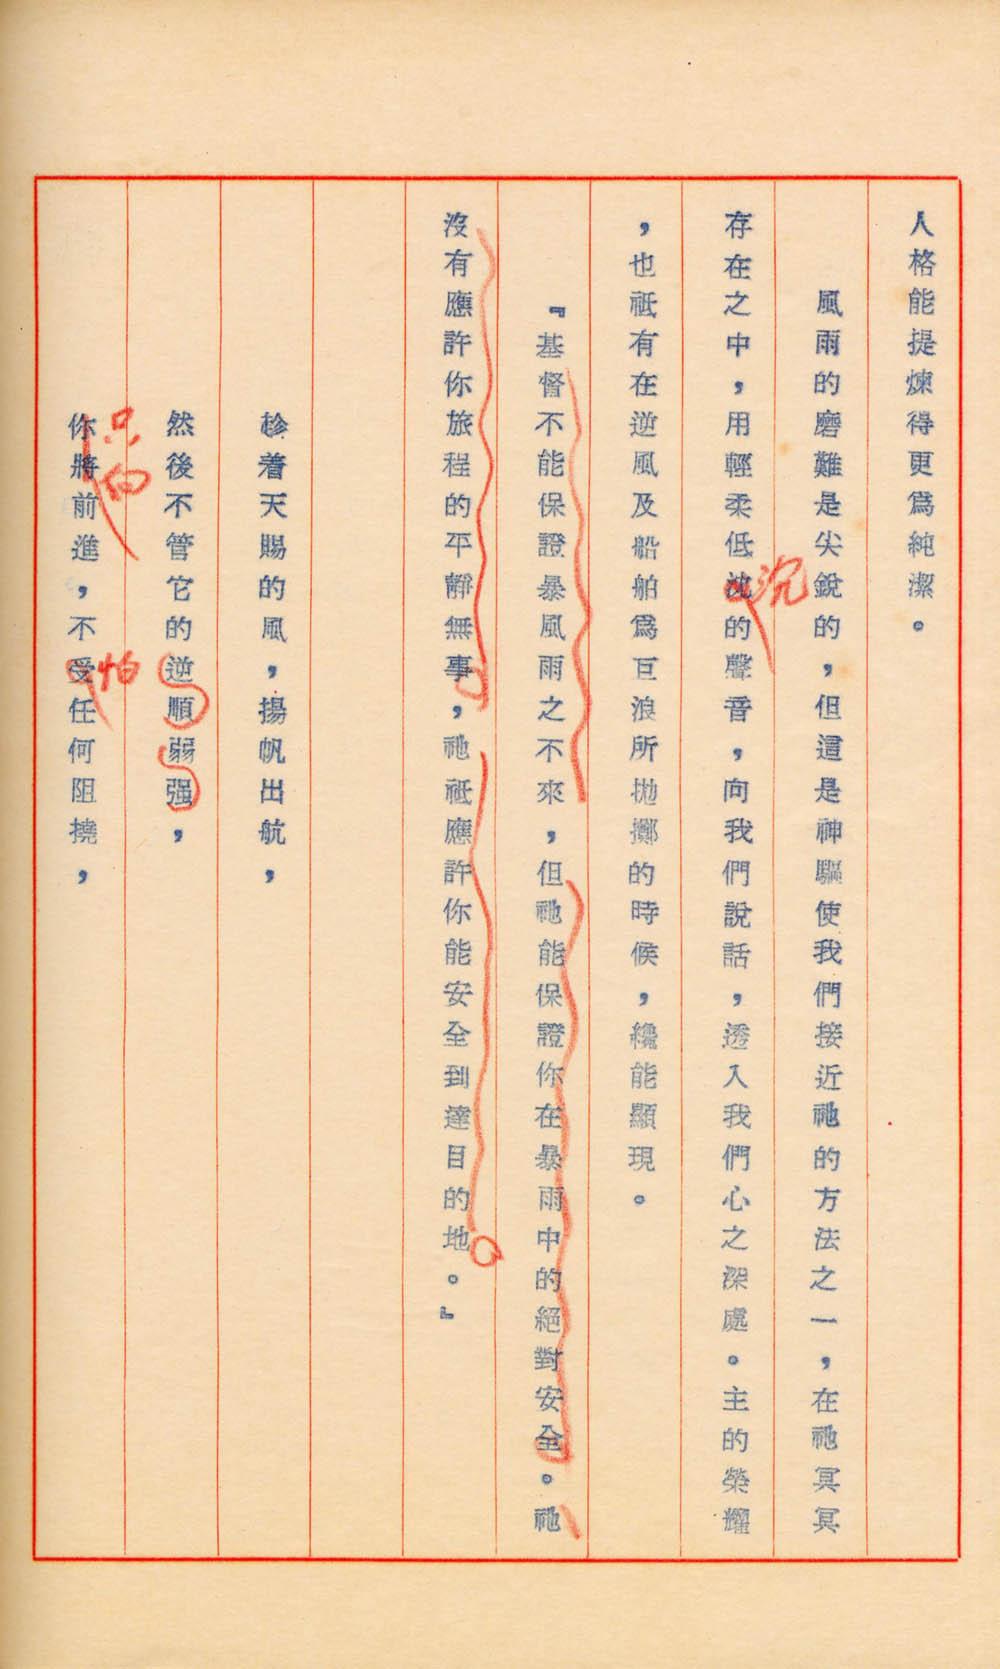 人格能提煉得更爲純潔。
風雨的磨難是尖銳的，但這是神驅使我們接近祂的方法之一，在祂冥冥
存在之中，用輕柔低沈的聲音，向我們說話，透入我們心之深處。主的榮耀
沉
，也祗有在逆風及船舶爲巨浪所拋擲的時候，纔能顯現。
『基督不能保證暴風雨之不來，但祂能保證你在暴雨中的絕對安全。祂
沒有應許你旅程的平靜無事，祂祗應許你能安全到達目的地。』
趁着天賜的風，揚帆出航，
然後不管它的逆順弱强，
你將前進，不受任何阻撓，
只向
怕